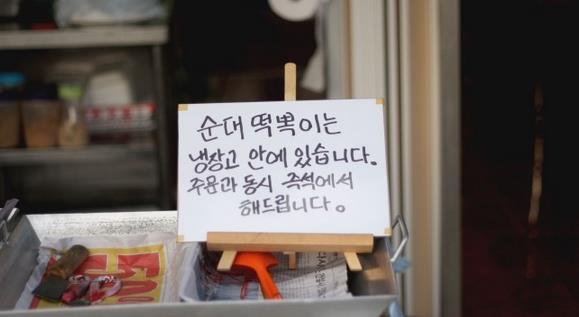 순대 떡볶이는
냉장고 안에 있습니다.
주문과 동시 즉석에서
해드립니다.